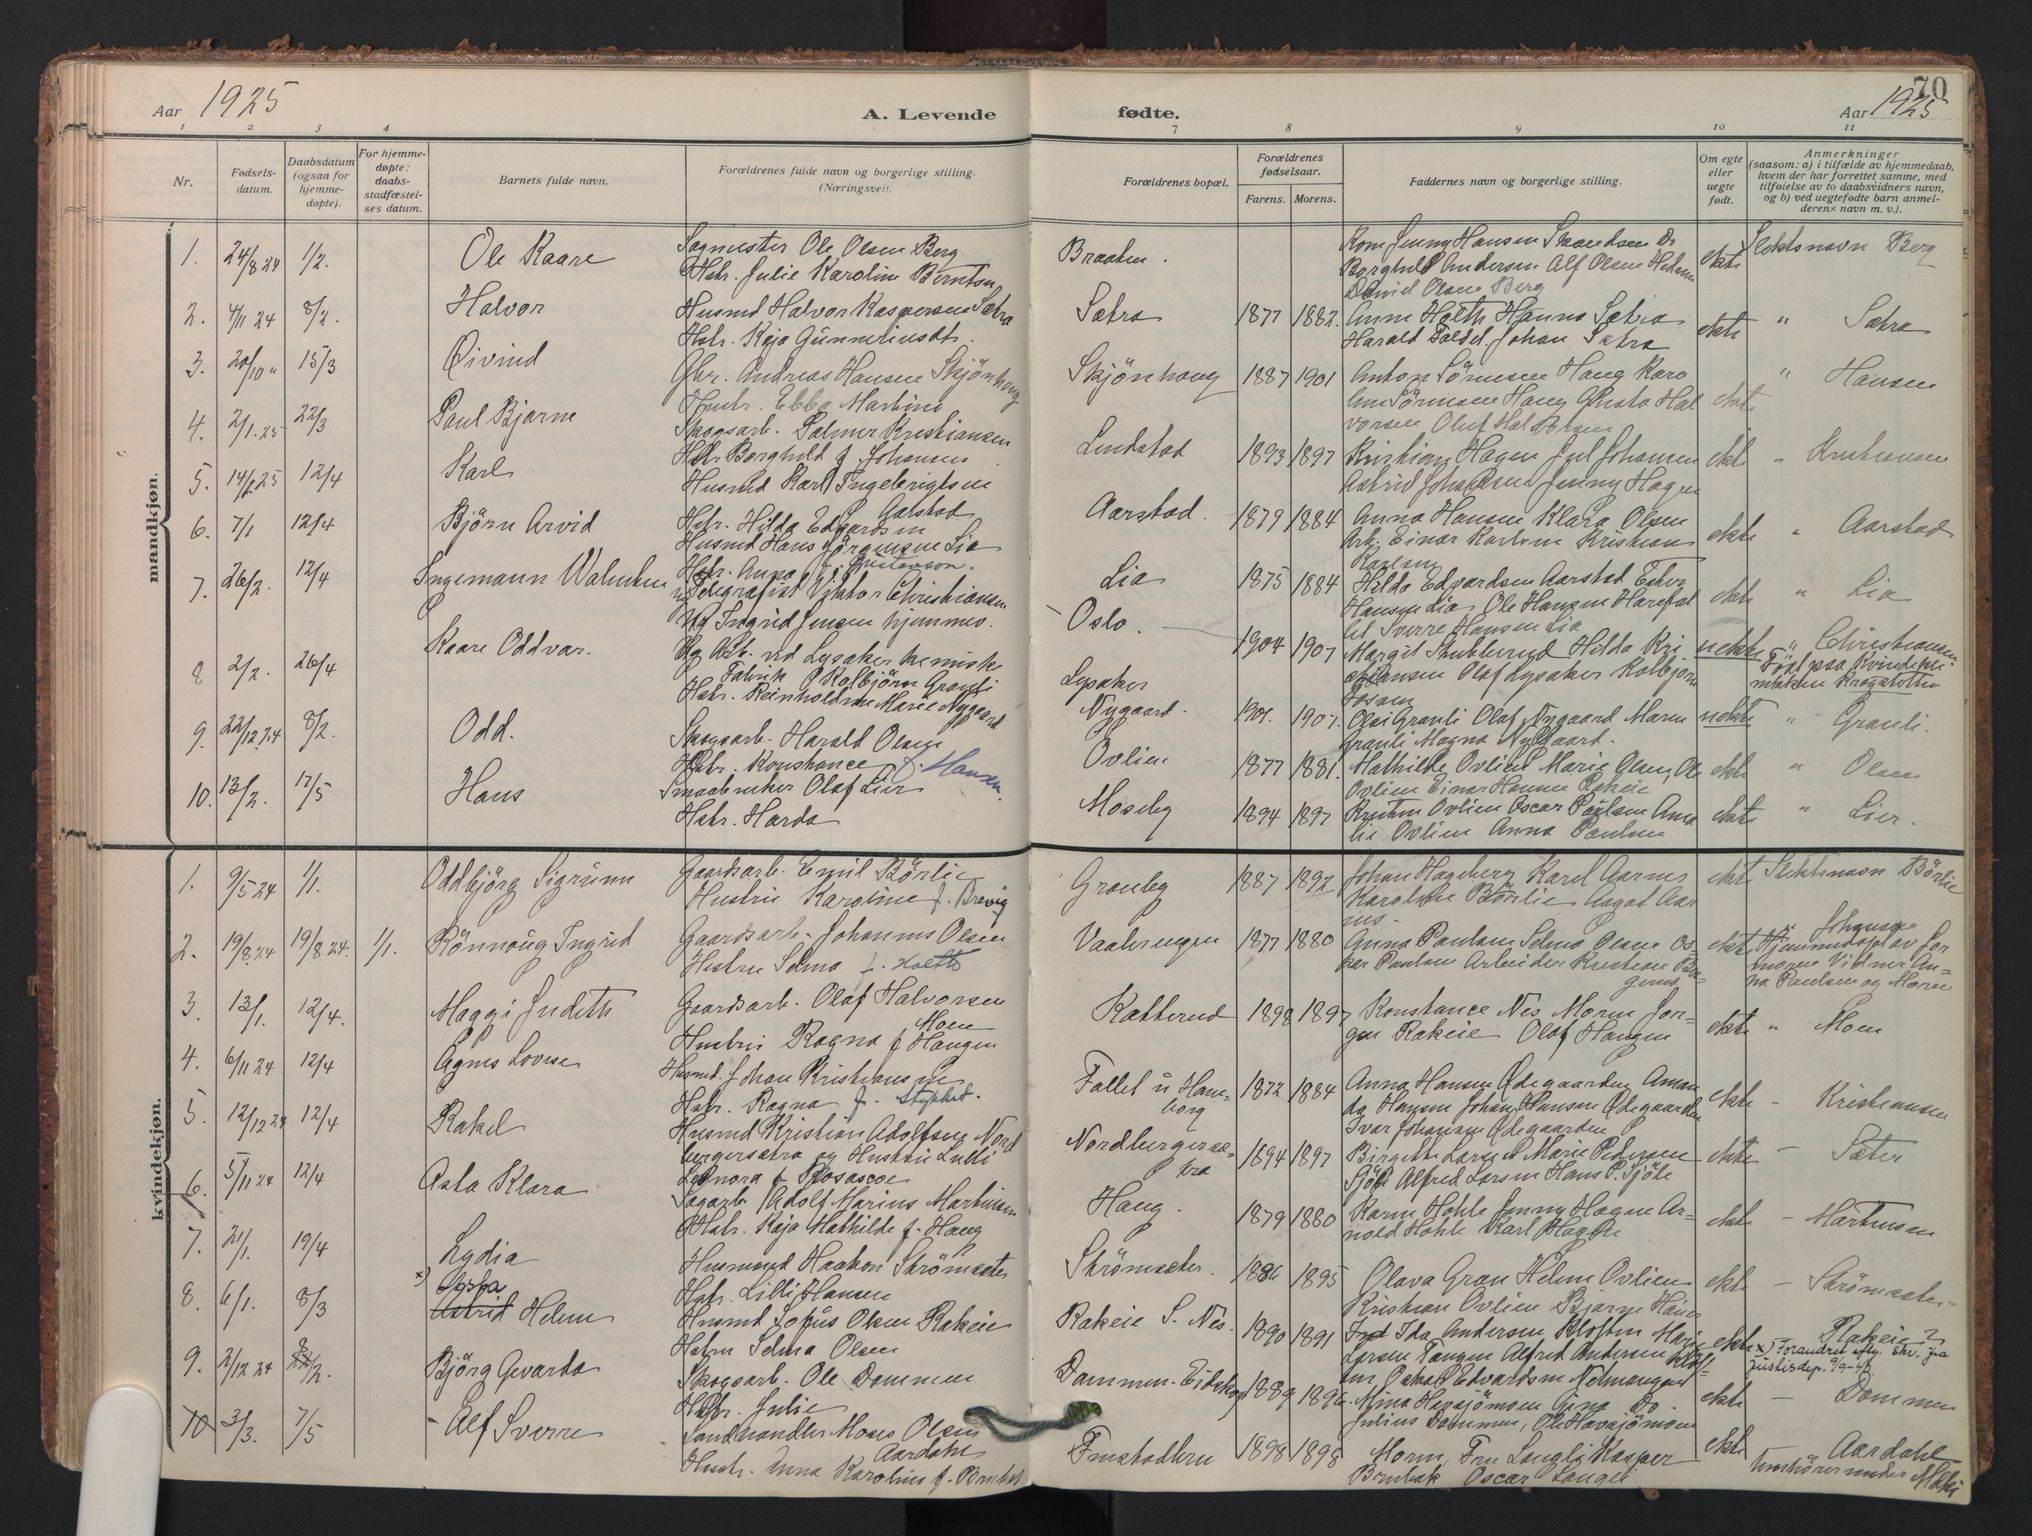 70
Aar 1925
A. Levende
fødte.
Aar 1925
1 2 3 4 7 8 9 10 11
Nr.
Fødsels-
datum.
Daabsdatum
(ogsaa for
hjemme-
døpte).
For hjemme-
døpte:
daabs-
stadfæstel-
ses datum.
Barnets fulde navn.
Forældrenes fulde navn og borgerlige stilling.
(Næringsvei).
Forældrenes bopæl.
Forældrenes
fødselsaar.
Farens. Morens.
Faddernes navn og borgerlige stilling.
Om egte
eller
uegte
født.
Anmerkninger
(saasom: a) i tilfælde av hjemmedaab,
hvem der har forrettet samme, med
tilføielse av to daabsvidners navn,
og b) ved uegtefødte barn anmel-
derens navn m. v.).
mandkjøn.
1. 24/8 24 1/2. Ole Kaare
Sagmester Ole Olsen Berg
Hstr. Julie Karoline Berntsen
Braaten.
Jenny Hansen
Borghild Andersen Alf Olsen
Olsen Berg
ekte Slektsnavn Berg
2. 4/11 24 8/2. Halvor
Husmd Halvor Kaspersen Sætra
Hstr. Kaja Gunneriusdtr.
Sætra 1877 1882.
Anne Holth Hanna Sætra
Harald Johan Sætra
ekte " Sætra
3. 20/10 " 15/3 Øivind
Gbr. Andreas Hansen Skjönhaug
Hustr. Ebba Martine
Skjönhaug 1887 1901
Anton Sörensen Haug Karo
line Sörensen Haug Gusta Hal
vorsen Oluf Halvorsen
ekte " Hansen
4. 2/1-25 22/3 Paul Bjarne
Skogsarb. Palmer Kristiansen
Hstr Borghild f Johansen
Lindstad 1893 1897
Kristian Hagen Juel Johansen
Astrid Johansen Jenny Hagen
ekte " Kristiansen
5. 14/1 25 12/4 Karl
Husmd Karl Ingebrigtsen
Aarstad
Hstr. Hilda Edvardsen
Aarstad. 1879 1884
Anna Hansen Klara Olsen
Arb. Einar Karlsen Kristian
Karlsen
ekte " Aarstad
6. 7/1 12/4 Björn Arvid
Husmd Hans Jörgensen Lia
Hstr. Anna f. Gustavson.
Lia 1875 1884
Hilda Edvardsen Aarstad Ester
Hansen Lia Ole Hansen
Sverre Hansen Lia
ekte " Lia
7. 26/2. 12/4 Ingemann
Telegrafist Viktor Christiansen
Pg Ingrid Jensen hjemmev.
Oslo. 1904 1907
Margit Hilda Kri
Olaf Lysaker Kolbjörn
uekte " Christiansen
8 2/2. 26/4 Kaare Oddvar.
Ug Arb. ved Lysaker kemiske
Fabrik Kolbjörn Granli
Hstr. Reinholdine Marie Nygaard
Lysaker
Nygaard. 1901. 1907.
Olai Granli Olaf Nygaard Maren
Granli Magna Nygaard.
uekte " Granli.
9. 22/12 24 8/2. Odd.
Skogsarb. Harald Olsen
Hstr. Konstance f. Hansen.
Ovlien 1877 1881.
Mathilde Ovlien Marie Olsen Ole
Ovlien Einar Hansen Rakeie
ekte " Olsen
10. 13/2. 17/5 Hans
Smaabruker Olaf Lier
Hstr. Harda
Moseby 1894 1897
Kristen Ovlien Oscar Paulsen Ama
lie Ovlien Anna Paulsen
ekte " Lier.
kvindekjøn.
1. 9/5 24 1/1. Oddbjörg Sigrunn
Gaardsarb. Emil Börlie
Hustru Karoline f. Brevig
Granby 1887 1892
Johan Hageberg Karel Aarnes
Karoline Börlie Aagot Aar
nes.
ekte Slektsnavn Börlie
2. 19/8 24 19/8 24. 1/1. Rönnaug Ingrid
Gaardsarb. Johannes Olsen
Hustru Selma f. Holth
Vaaleringen 1877 1880
Anna Paulsen Selma Olsen Os
kar Paulsen Arbeider Kristian
ekte " Johansen
Hjemmedøpt av Jor
moren Vidner An-
na Paulsen og Moren
3. 13/1. 12/4. Maggi Judith
Gaardsarb. Olaf Halvorsen
Moen
Hustru Ragna f Haugen
Katterud 1898 1897
Konstance Nes Maren Jor-
gen Rakeie Olaf Haugen
ekte " Moen
4. 6/11 24 12/4 Agnes Lovise
Husmd. Johan Kristiansen
Hstr. Ragna f.
Fallet u Ham-
borg 1872 1884
Anna Hansen Ødegaarden Aman
da Hansen Johan Hansen Ødegaarden
Ivar Johansen Ødegaarden
ekte - Kristiansen
5. 12/12 24 12/4 Rakel
Husmd Kristian Adolfsen Nord
bergersætra og Hustru Lulli
Leonora f
Nordbergersæ-
tra 1894 1897
Birgitte Larsen Marie Pedersen
Sjöli Alfred Larsen Hans P. Sjöli
ekte - Sæter
6. 5/11 24 12/4 Asta Klara
Sagarb. Adolf Marius Martinsen
Hstr. Kaja Mathilde f. Haug
Haug. 1879 1880
Karen Hokle Jenny Hagen Ar-
nold Hokle Karl Hagen
ekte - Martinsen
7. 2/1. 19/4 Lydia
Husmand Haakon Strömsæter
Hstr. Lilli Hansen
Strömsæter. 1886 1895
Olava Gran Helene Ovlien
Kristian Ovlien Bjarne
ekte - Strömsæter
8. 6/1. 8/3 x) Astrid Helene
Husmd Sofus Olsen Rakeie
Hstru Selma Olsen
Rakeie S. Nes. 1890 1891
Ida Andersen Kloften
Larsen Tangen Alfred Andersen
Oskar Edvardsen
ekte Rakeie
x) Forandret efter skr. fra
Justisdep. 9/9-46
9. 2/12 24 8/2. Björg Gvarda
Skogsarb. Ole Dammen
Hstr. Julie
Dammen. Eidskog 1889 1896
Mina Havsjömoen Gina Do.
Julius Dammen, Ole Havsjömoen
ekte - Dammen
10 3/3. 7/5 Alf Sverre
Landhandler Moses Olsen
Aardahl
Hustr. Anna Karoline f.
1898 1898
Moren, Fru Langli Kasper
Oscar Langli
ekte Aardahl